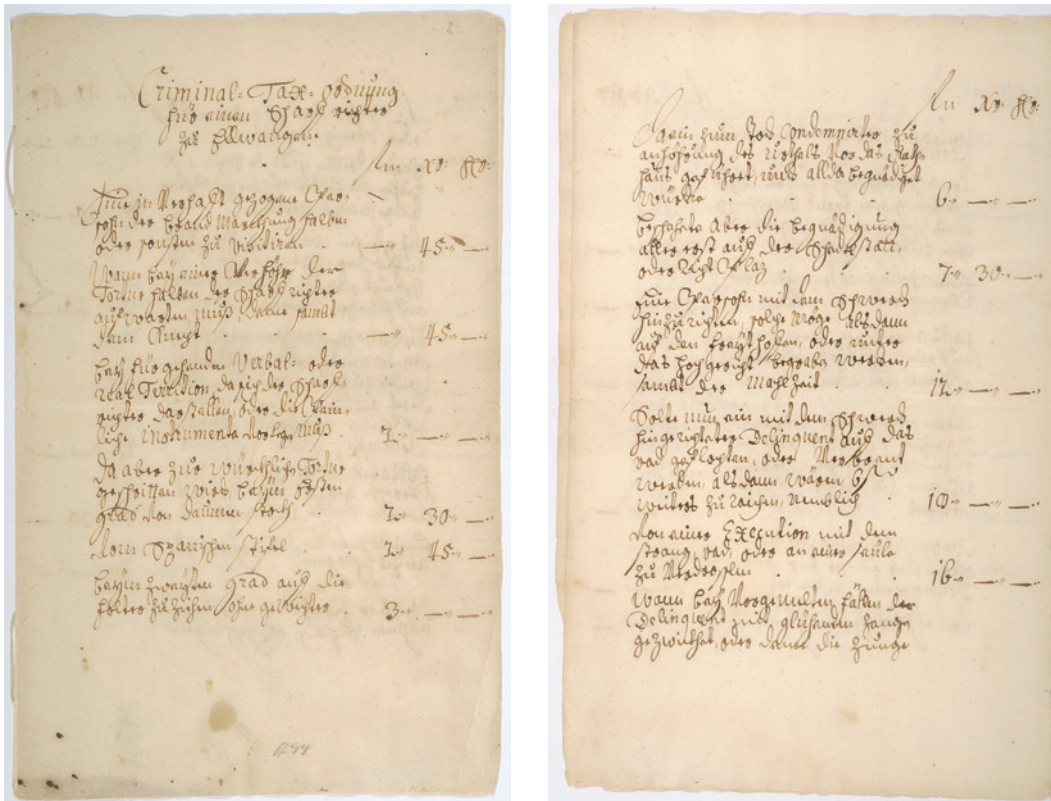 2.
Criminal-Tax-ordnung
für einen Scharfrichter
zu Ellwangen.
fl. xr. hr.
Eine in Verhafft gezogene Per-
sohn der brand Marckhung halben
oder sonsten zu visitiren . — 45 —
Wann bey einer Verhör der
Tortur halben der Scharfrichter
aufwarten muß, deme sambt
dem Knecht . — 45 —
bey fürgehenden Verbal- oder
real Territion, da sich der Scharf-
richter darstellen, oder die Pein-
liche instrumenta vorlegen muß . 1 — —
Da aber zur würckhlichen Tortur
geschritten wird, beym Ersten
grad von daumen stockh . 1 30 —
vom Spanischen stifel . 1 45 —
beym zweyten grad auf die
folter zu ziehen ohne gewichter . 3 — —
1744
fl. xr. hr.
Ein zum Tod Condemnirter zu
anhörung des Urthels vor das Rath-
haus geführet, und allda begnadiget
würde . 6 — —
beschehete aber die begnädigung
allererst auf der Schedelstatt,
oder Richt Plaz . 7 30 —
Eine Persohn mit dem Schwerd
hinzurichten, solche möge alsdann
auf den freythoffen, oder unter
das hochgericht begraben werden,
sambt der Mahlzeit 12 — —
Solte nun ein mit dem Schwerd
hingerichteter Delinquent auf das
rad geflochten, oder Verbrent
werden, alsdann wären
weiters zu raichen, nemblich . 10 — —
Von einer Execution mit dem
strang, rad, oder an einer saule
zu verdrosslen . 16 — —
Wann bey vorgemelten fällen der
Delinquent mit glühenden zangen
gezwickhet, oder deme die zunge